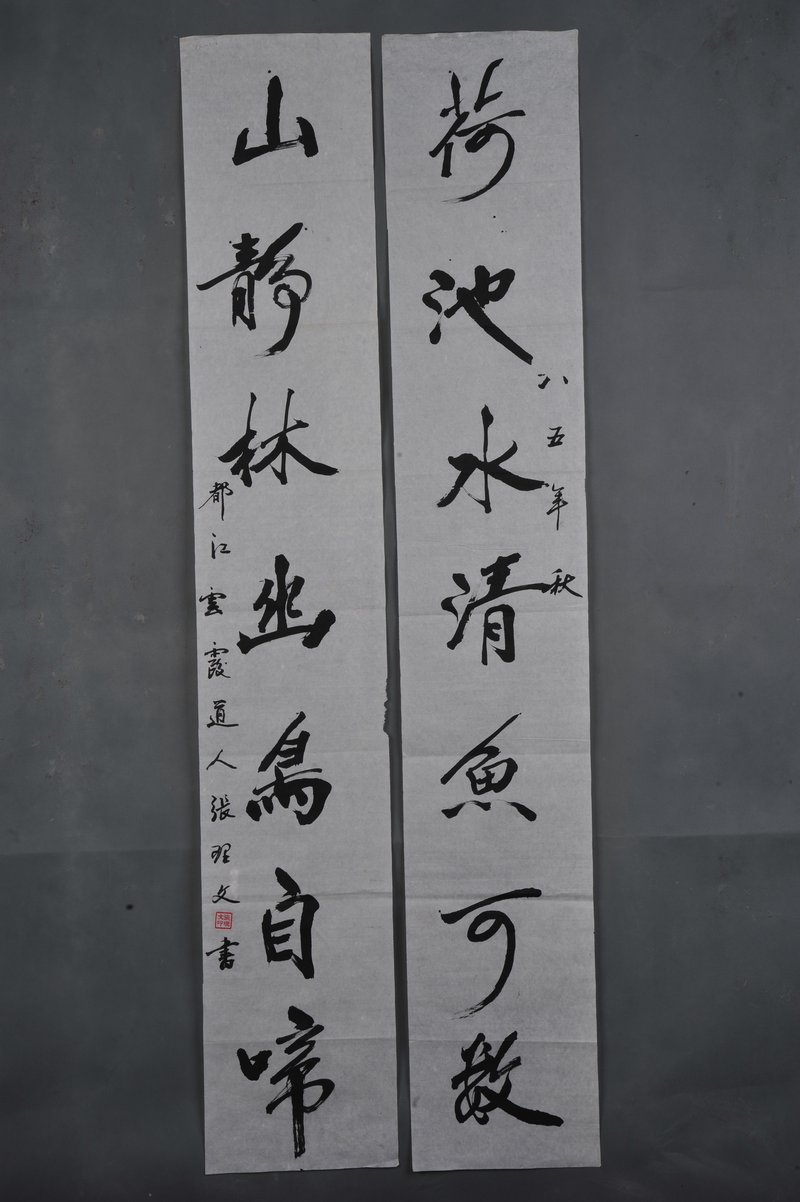 荷池水清魚可数
八五年秋
山靜林幽鳥自啼
都江雲霞道人張理文書